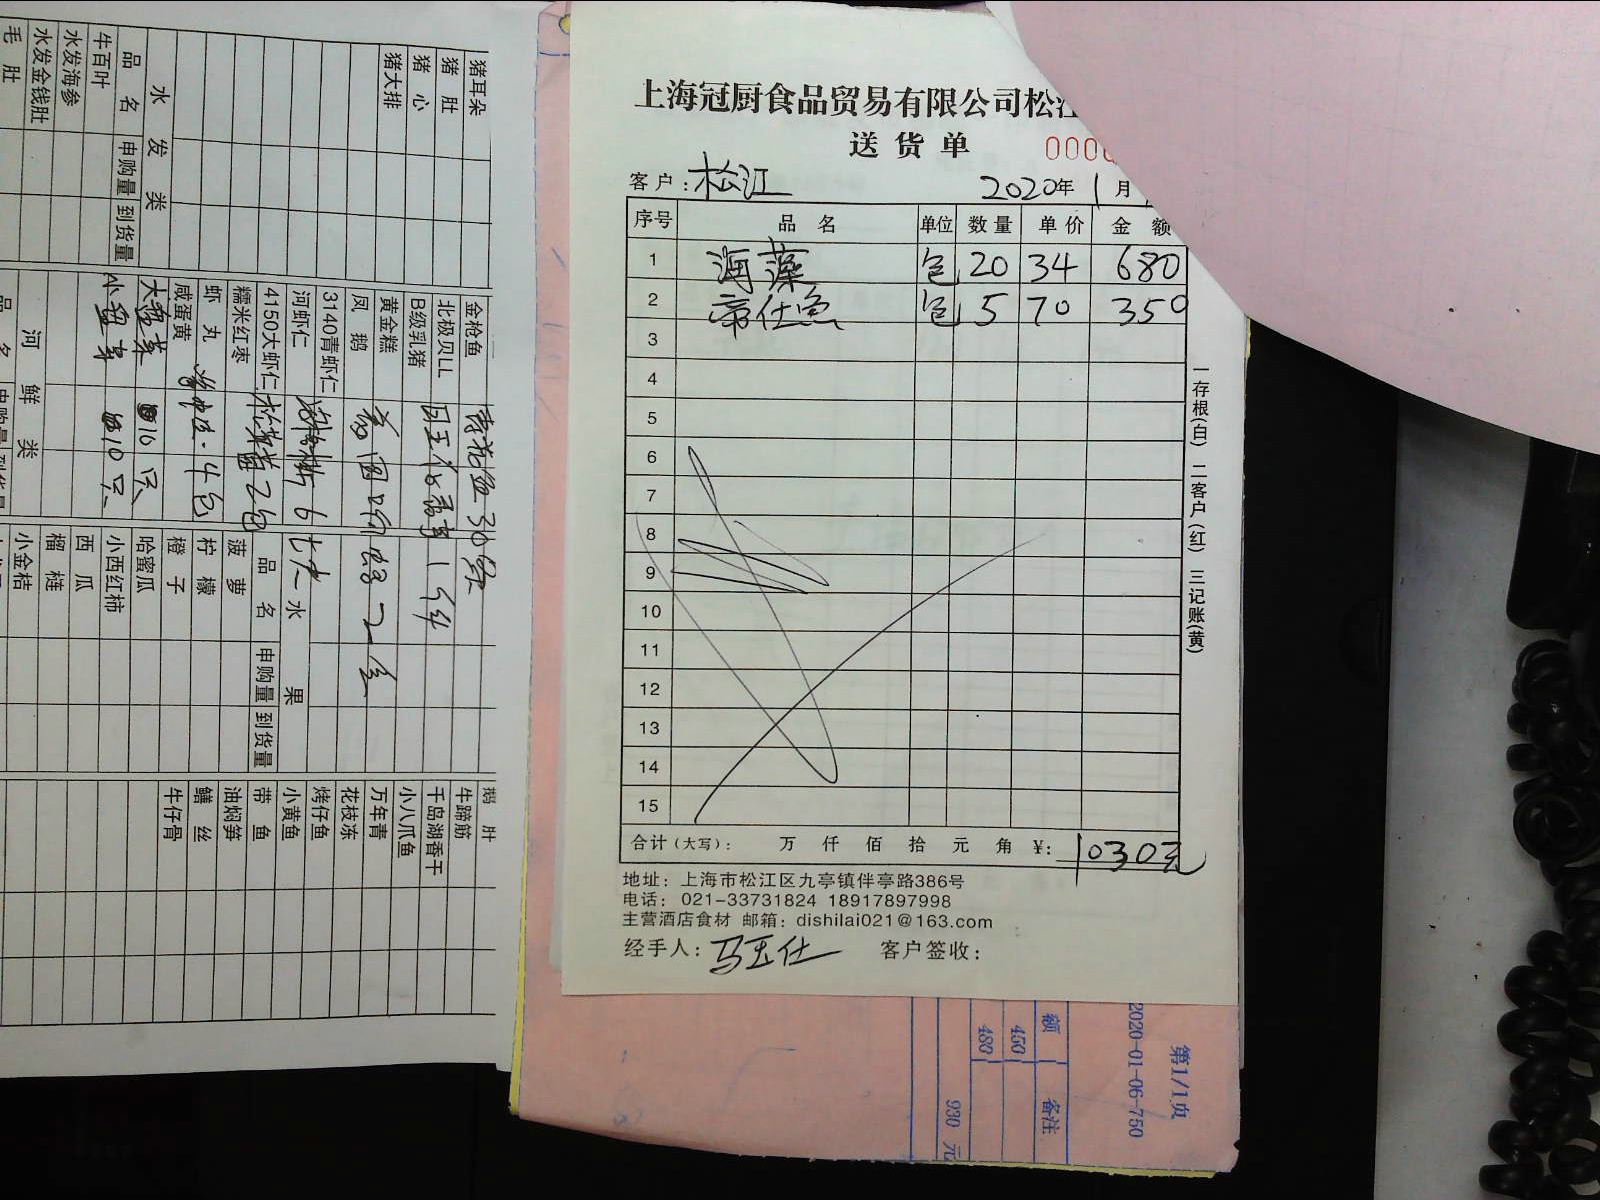 上海冠厨食品贸易有限公司松江
送货单
客户: 松江 2020年 1月
序号 品名 单位 数量 单价 金额
1 海藻 包 20 34 680
2 帝仕鱼 包 5 70 350
3
4
5
6
7
8
9
10
11
12
13
14
15
合计(大写): 万 仟 佰 拾 元 角 ¥: 1030元
地址: 上海市松江区九亭镇伴亭路386号
电话: 021-33731824 18917897998
主营酒店食材 邮箱: dishilai021@163.com
经手人: 马玉仕 客户签收:
一存根(白) 二客户(红) 三记账(黄)
第1/1页
2020-01-06-750
额 备注
450
480
930 元
猪耳朵
猪肚
猪心
猪大排
水发类
品名 申购量 到货量
牛百叶
水发海参
水发金钱肚
毛肚
金枪鱼
北极贝LL
B级乳猪
黄金糕
凤鹅
3140青虾仁
河虾仁
4150大虾仁
糯米红枣
虾丸
咸蛋黄
河鲜类
水果
品名 申购量 到货量
菠萝
柠檬
橙子
哈蜜瓜
小西红柿
西瓜
榴梿
小金桔
鹅肚
牛蹄筋
千岛湖香干
小八爪鱼
万年青
花枝冻
烤仔鱼
小黄鱼
带鱼
油焖笋
鳝丝
牛仔骨